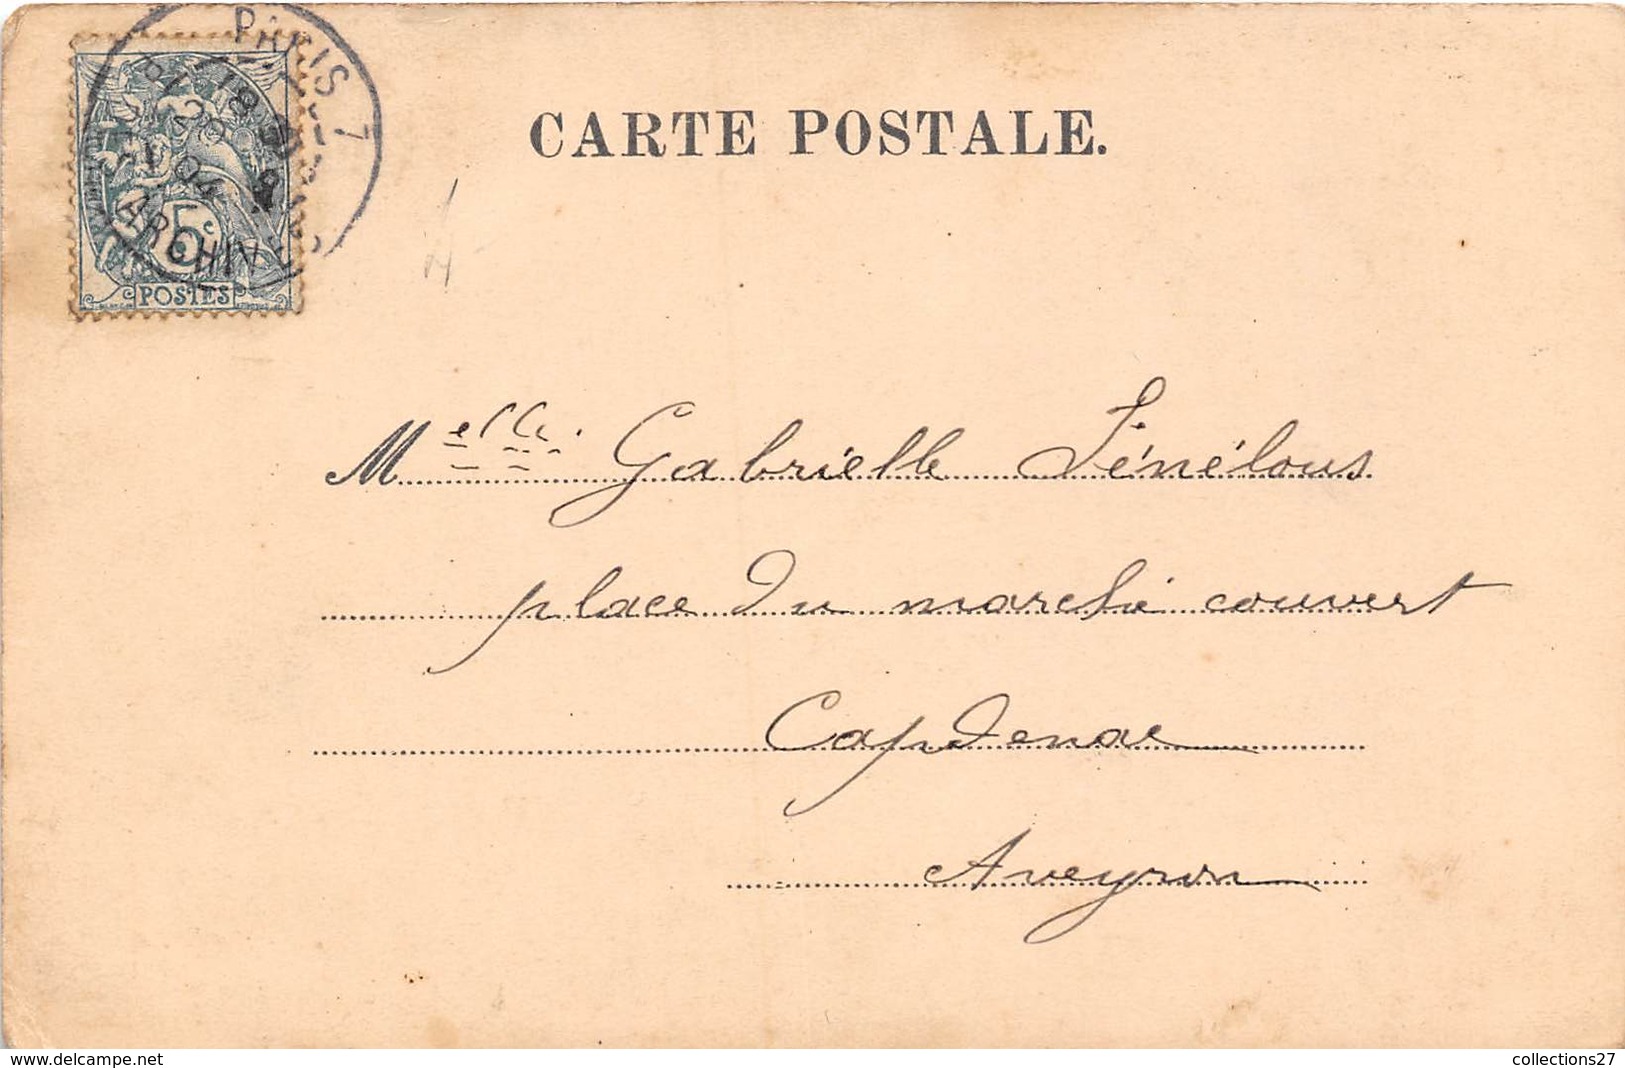 PARIS 7
04
5c
POSTES
CARTE POSTALE.
Melle. Gabrielle Fénélous
place du marché couvert
Capdenac
Aveyron
delcampe.net
collections27